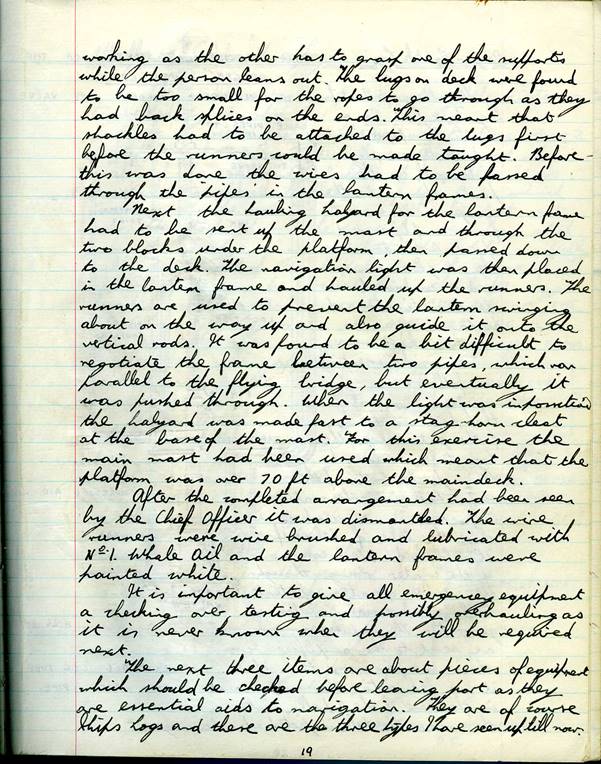 working as the other has to grasp one of the supports
while the person leans out. The lugs on deck were found
to be too small for the ropes to go through as they
had back splices on the ends. This meant that
shackles had to be attached to the lugs first
before the runners could be made taught. Before
this was done the wires had to be passed
through the 'pipes' in the lantern frames.
Next the hauling halyard for the lantern frame
had to be sent up the mast and through the
two blocks under the platform, then passed down
to the deck. The navigation light was then placed
in the lantern frame and hauled up the runners. The
runners are used to prevent the lantern swinging
about on the way up and also guide it onto the
vertical rods. It was found to be a bit difficult to
negotiate the frame between two pipes, which ran
parallel to the flying bridge, but eventually it
was pushed through. When the light was in position
the halyard was made fast to a stag-horn cleat
at the base of the mast. For this exercise the
main mast had been used which meant that the
platform was over 70 ft above the maindeck.
After the completed arrangement had been seen
by the Chief Officer it was dismantled. The wire
runners were wire brushed and lubricated with
No. 1. Whale Oil and the lantern frames were
painted white.
It is important to give all emergency equipment
a checking over testing and possibly overhauling as
it is never known when they will be required
next.
The next three items are about pieces of equipment
which should be checked before leaving port as they
are essential aids to navigation. They are of course
Ships logs and these are the three types I have seen up till now.
19